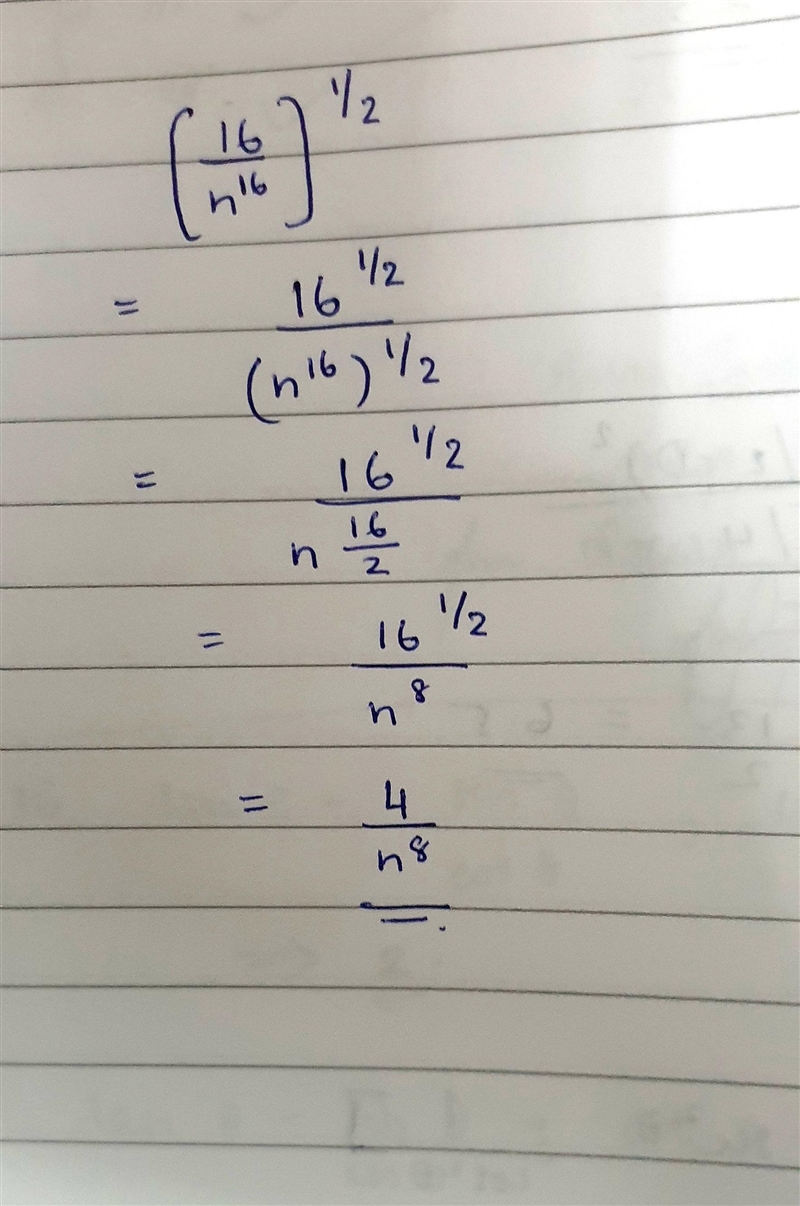 [16/n^16]^1/2
= 16^1/2 / (n^16)^1/2
= 16^1/2 / n^16/2
= 16^1/2 / n^8
= 4/n^8